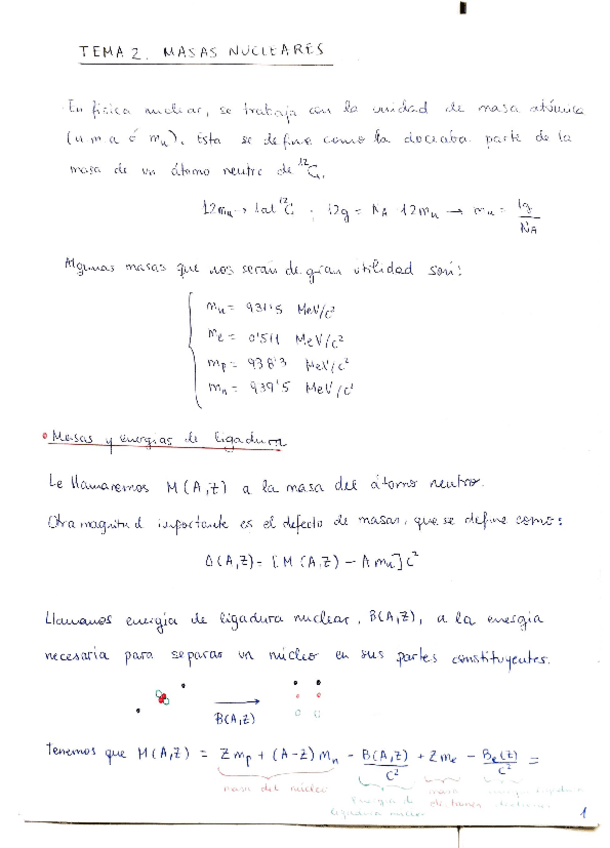 TEMA 2. MASAS NUCLEARES
En física nuclear, se trabaja con la unidad de masa atómica
(u m a ó mᵤ). Esta se define como la doceaba parte de la
masa de un átomo neutro de ¹²C.
12mᵤ → 1at ¹²C ; 12g = N_A 12mᵤ → mᵤ = 1g/N_A
Algunas masas que nos serán de gran utilidad son:
mᵤ = 931'5 MeV/c²
mₑ = 0'511 MeV/c²
mₚ = 938'3 MeV/c²
mₙ = 939'5 MeV/c²
• Masas y energías de ligadura
Le llamaremos M(A,Z) a la masa del átomo neutro.
Otra magnitud importante es el defecto de masas, que se define como:
Δ(A,Z) = [M(A,Z) - A mᵤ]c²
Llamamos energía de ligadura nuclear, B(A,Z), a la energía
necesaria para separar un núcleo en sus partes constituyentes.
B(A,Z)
Tenemos que M(A,Z) = Z mₚ + (A-Z) mₙ - B(A,Z)/c² + Z mₑ - Bₑ(Z)/c² =
masa del núcleo
1